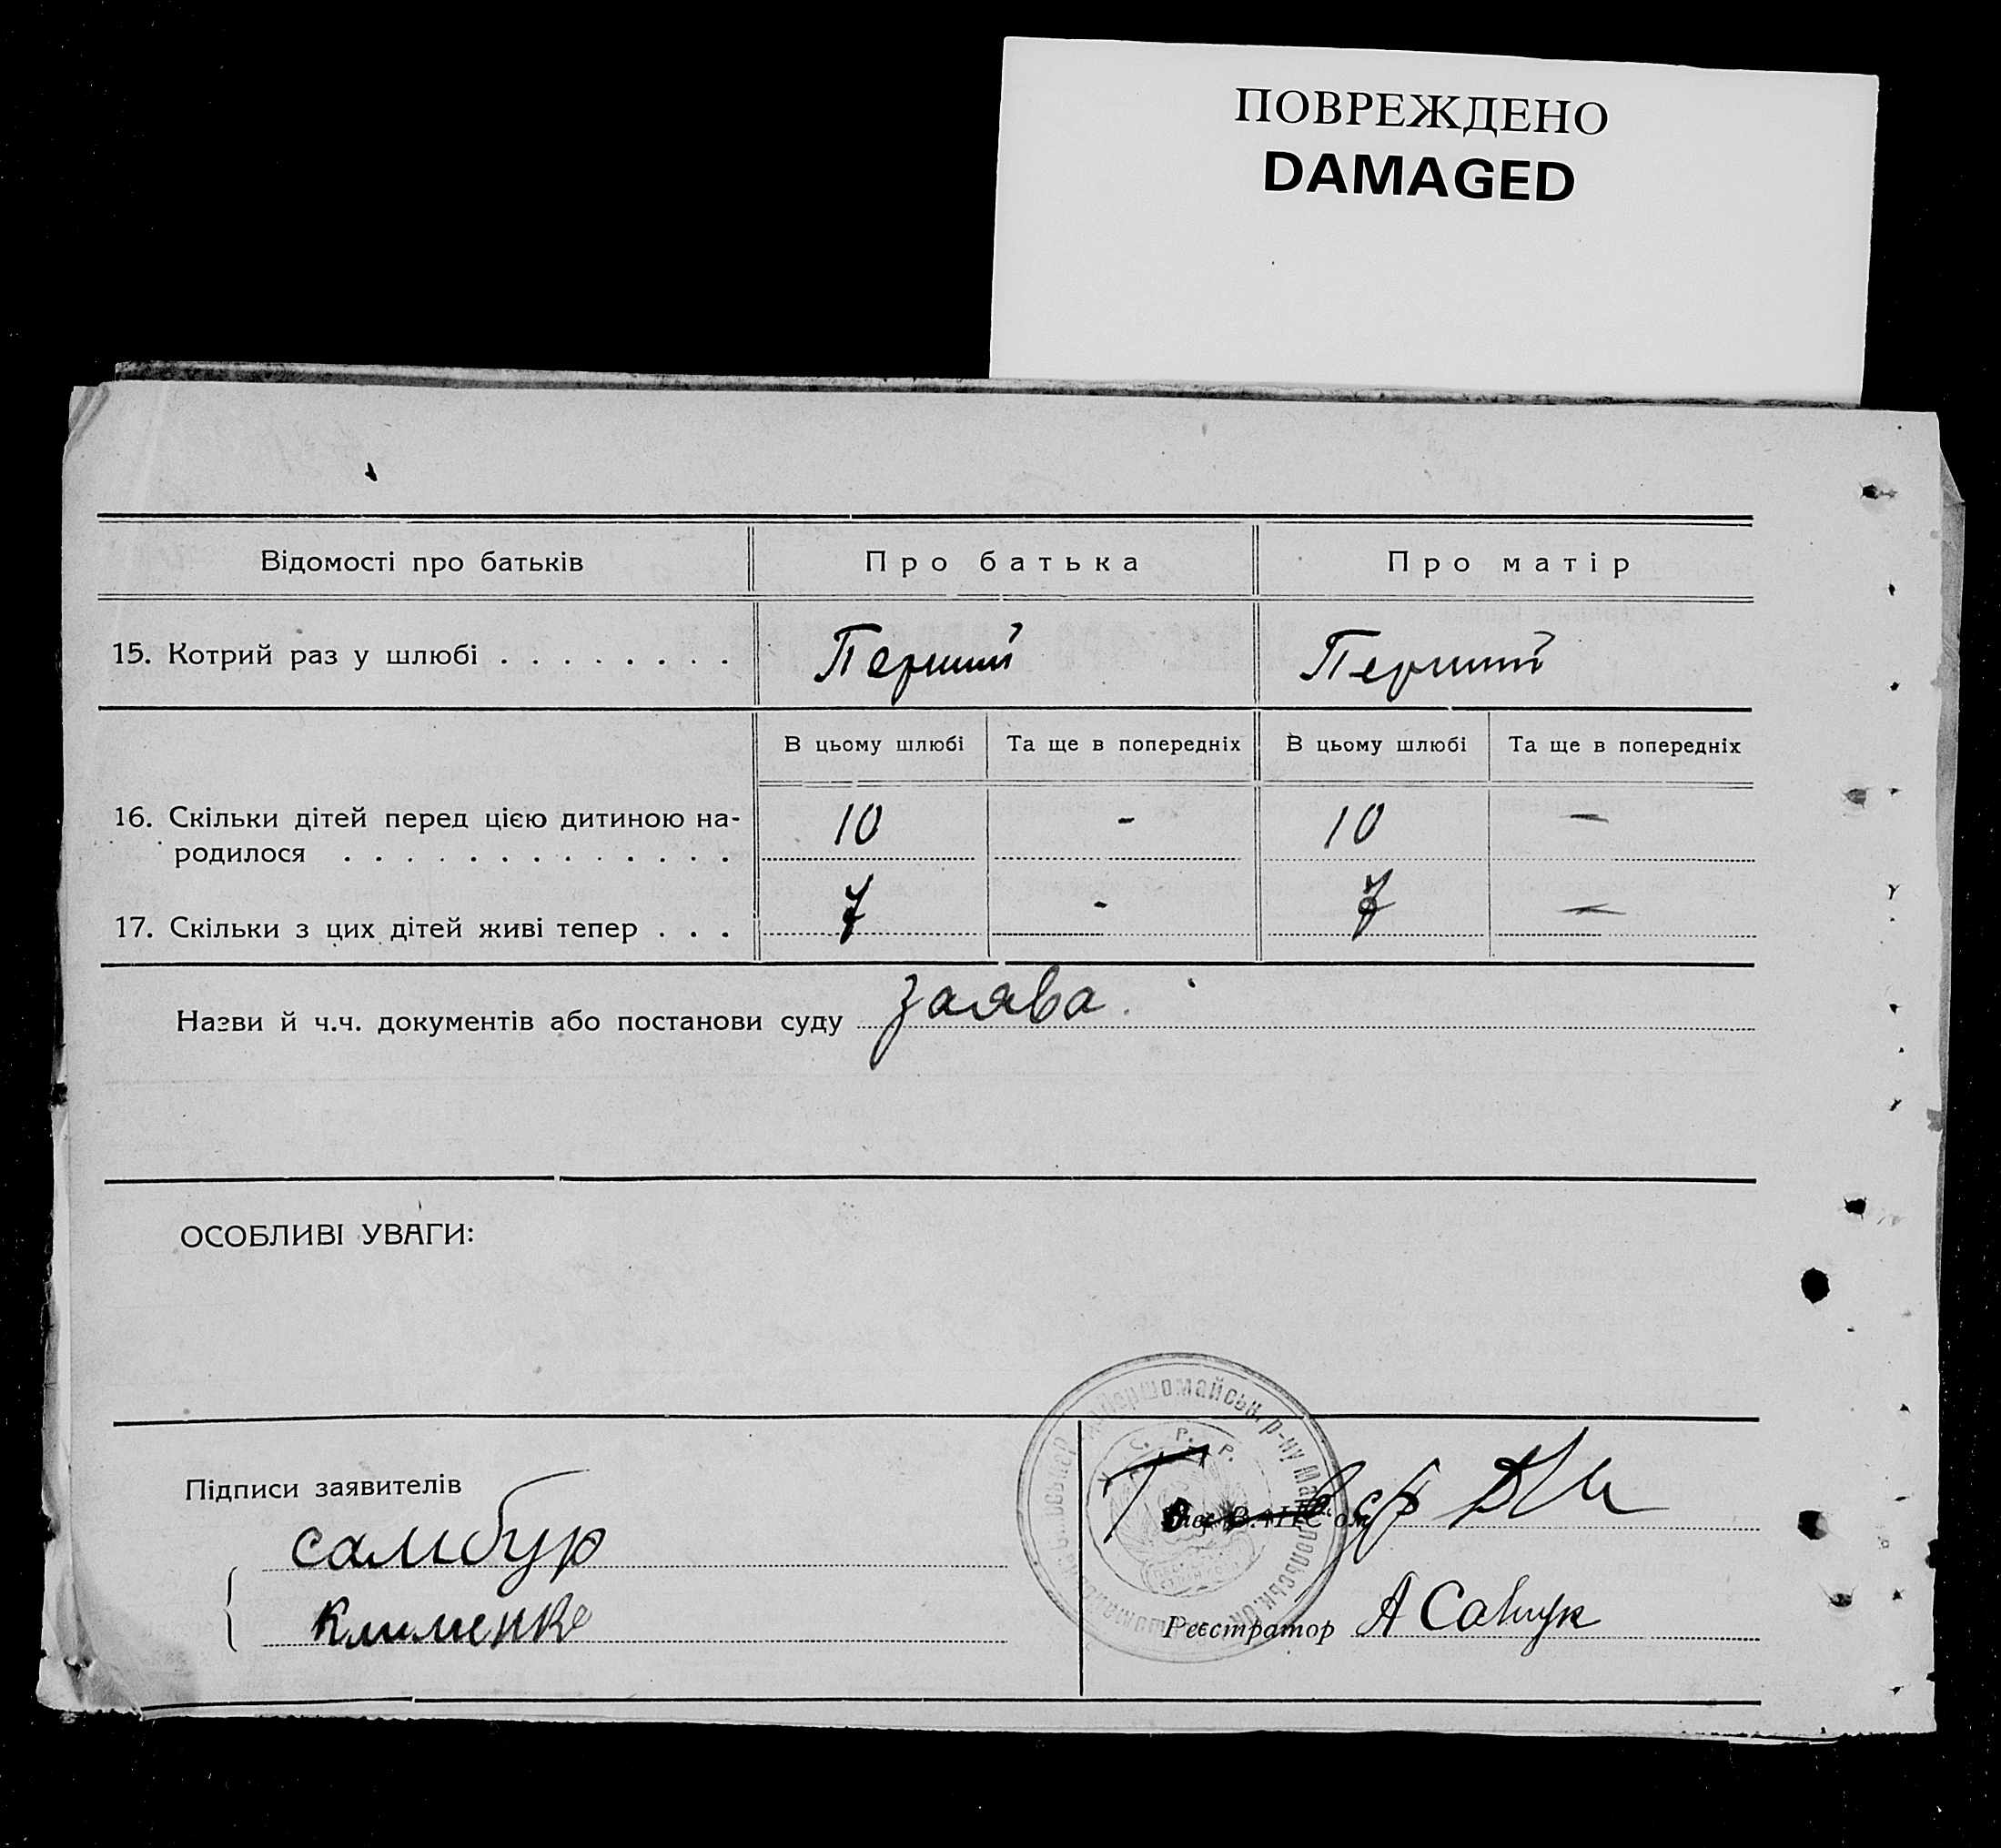 ПОВРЕЖДЕНО
DAMAGED
Відомості про батьків
Про батька
Про матір
15. Котрий раз у шлюбі . . . . . . . .
Перший
Перший
В цьому шлюбі
Та ще в попередніх
В цьому шлюбі
Та ще в попередніх
16. Скільки дітей перед цією дитиною на-
родилося . . . . . . . . . . . . .
10
-
10
-
17. Скільки з цих дітей живі тепер . . .
7
-
7
-
Назви й ч.ч. документів або постанови суду заява.
ОСОБЛИВІ УВАГИ:
Підписи заявителів
самбур
Клименко
Першомайськ. р-ну
У. С. Р. Р.
Реєстратор А Савчук